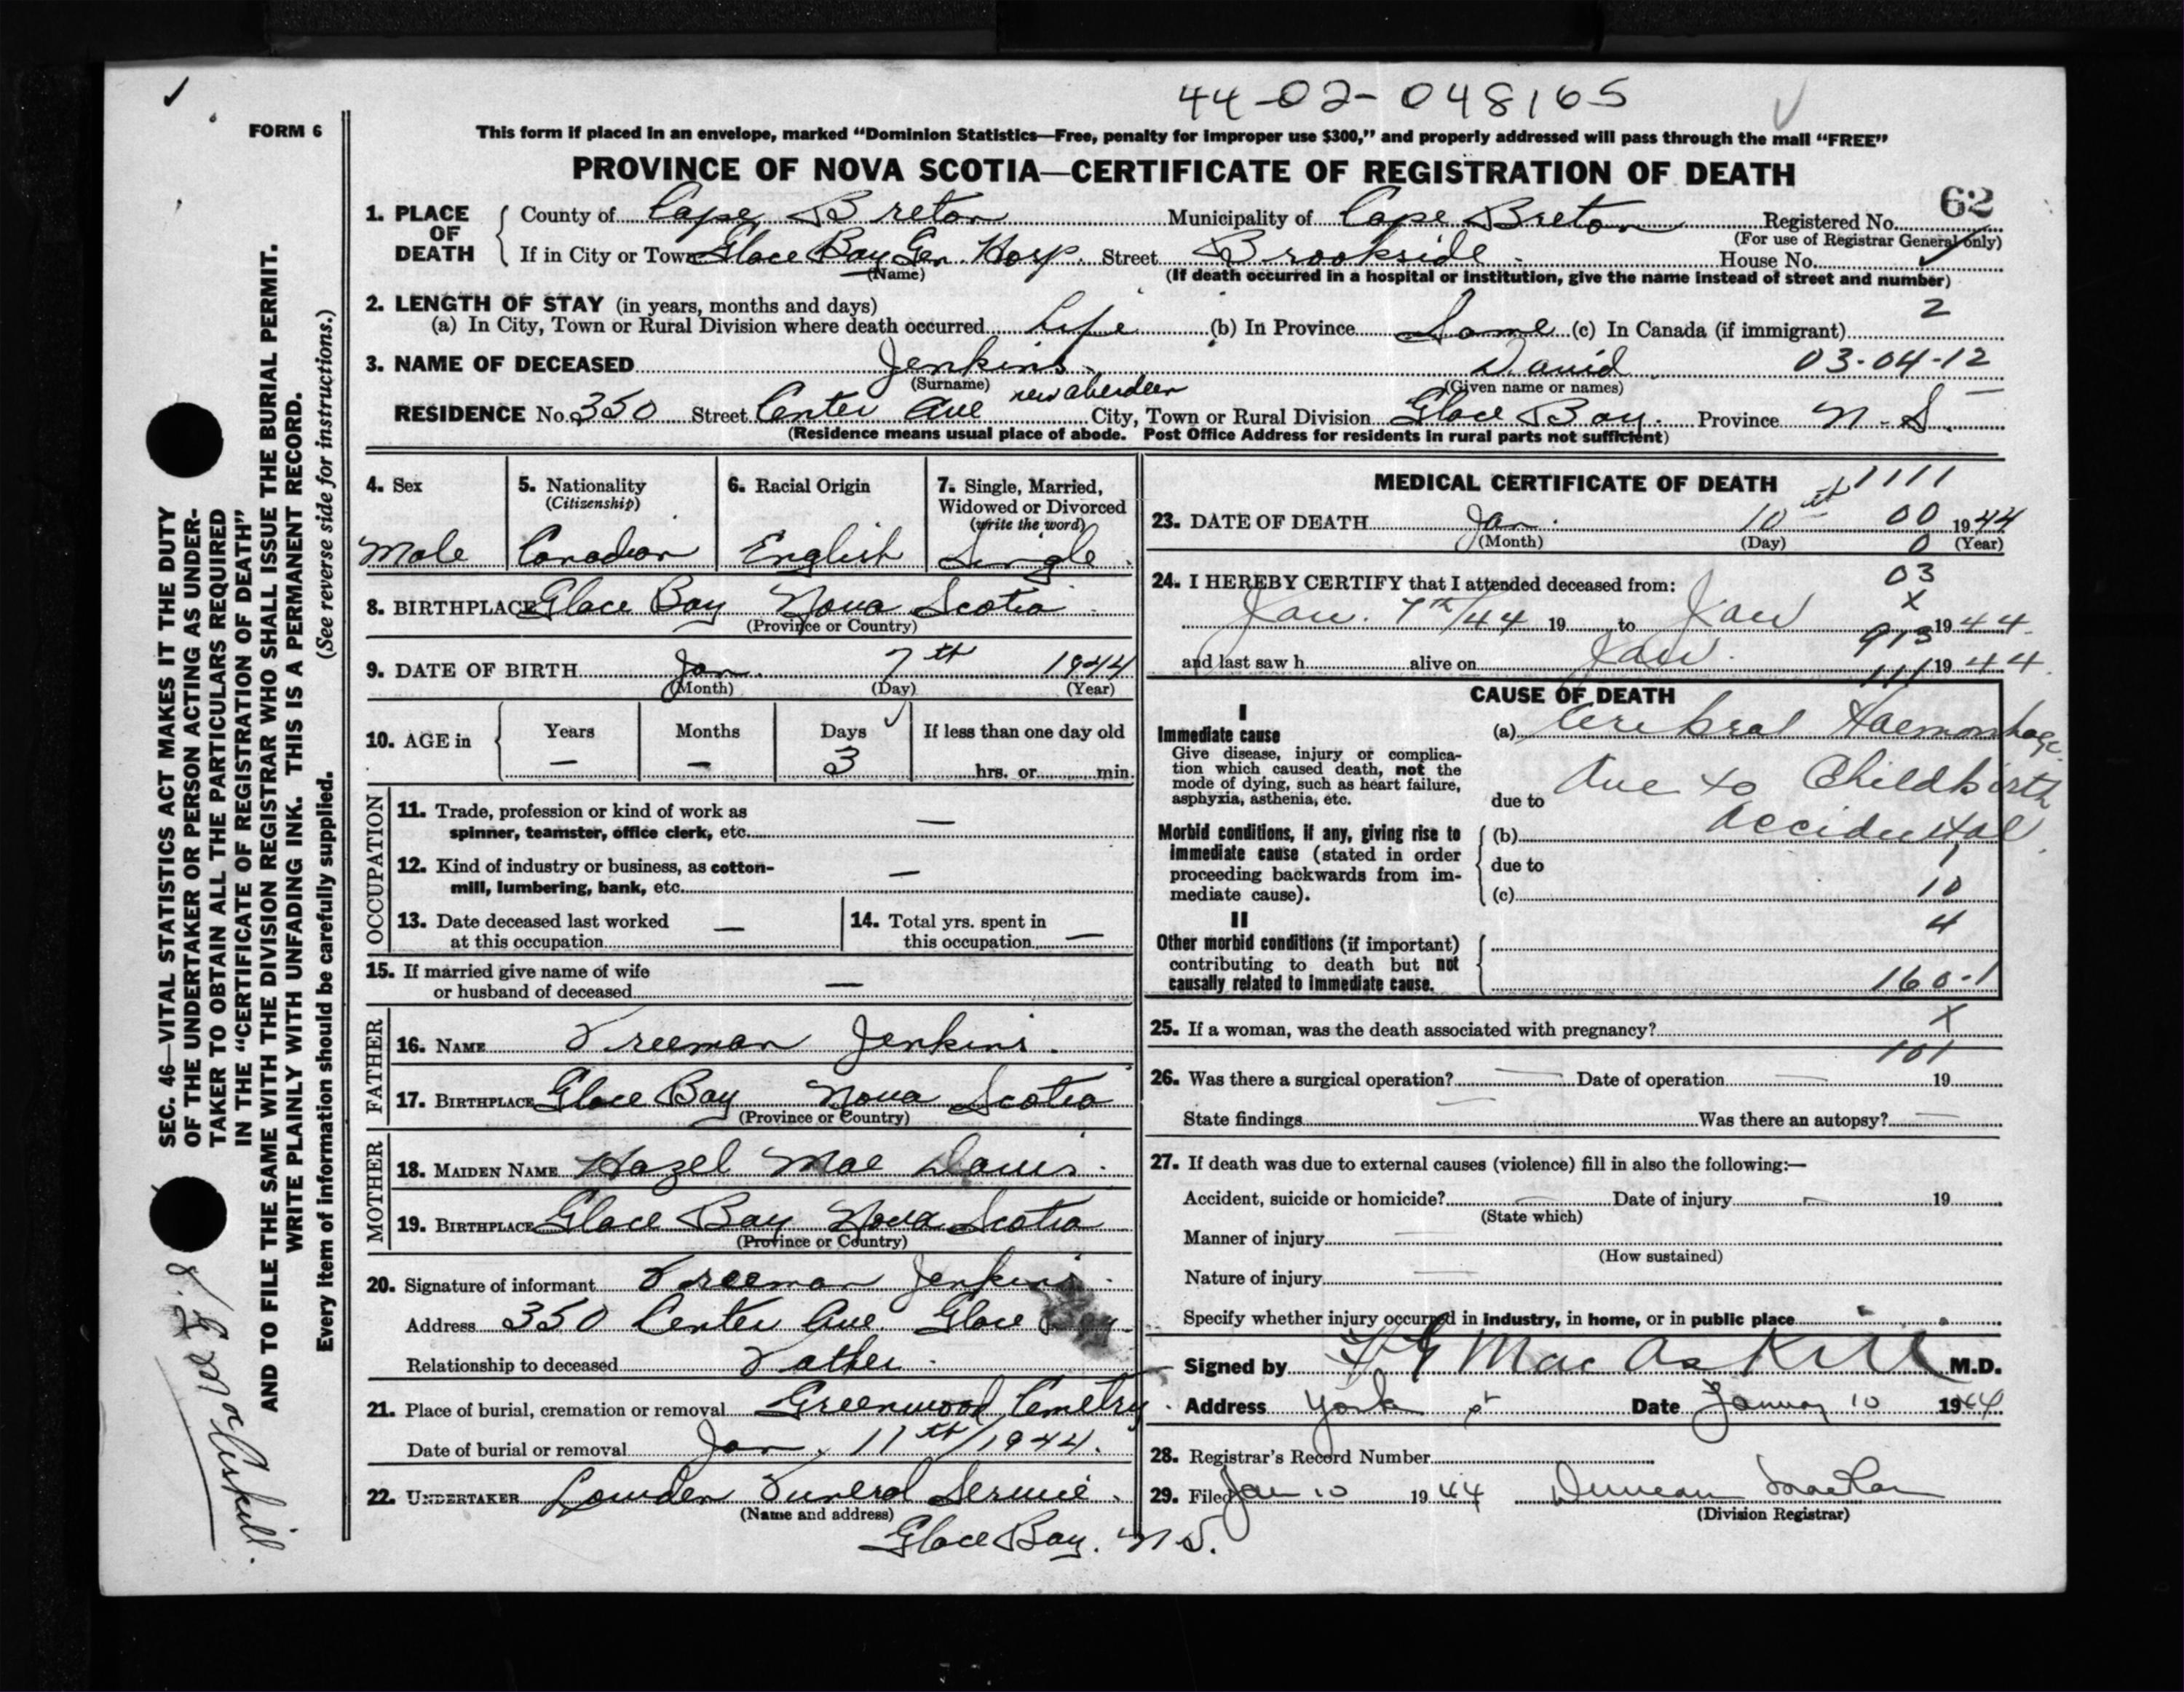 44-02-048165
FORM 6
This form if placed in an envelope, marked “Dominion Statistics—Free, penalty for improper use $300,” and properly addressed will pass through the mail “FREE”
PROVINCE OF NOVA SCOTIA—CERTIFICATE OF REGISTRATION OF DEATH
62
1. PLACE OF DEATH County of Cape Breton Municipality of Cape Breton Registered No.
(For use of Registrar General only)
If in City or Town Glace Bay Gen. Hosp. Street Brookside House No.
(Name) (If death occurred in a hospital or institution, give the name instead of street and number)
2. LENGTH OF STAY (in years, months and days) 2
(a) In City, Town or Rural Division where death occurred Life (b) In Province Same (c) In Canada (if immigrant)
3. NAME OF DECEASED Jenkins David 03-04-12
(Surname) (Given name or names)
new aberdeen
RESIDENCE No. 350 Street Center Ave City, Town or Rural Division Glace Bay. Province N. S.
(Residence means usual place of abode. Post Office Address for residents in rural parts not sufficient)
4. Sex 5. Nationality 6. Racial Origin 7. Single, Married,
(Citizenship) Widowed or Divorced
(write the word)
Male Canadian English Single
8. BIRTHPLACE Glace Bay Nova Scotia
(Province or Country)
9. DATE OF BIRTH Jan. 7th 1944
(Month) (Day) (Year)
10. AGE in Years Months Days If less than one day old
— — 3 hrs. or min.
OCCUPATION
11. Trade, profession or kind of work as
spinner, teamster, office clerk, etc. —
12. Kind of industry or business, as cotton-
mill, lumbering, bank, etc. —
13. Date deceased last worked 14. Total yrs. spent in
at this occupation — this occupation —
15. If married give name of wife
or husband of deceased —
FATHER
16. NAME Freeman Jenkins.
17. BIRTHPLACE Glace Bay Nova Scotia
(Province or Country)
MOTHER
18. MAIDEN NAME Hazel Mae Davis.
19. BIRTHPLACE Glace Bay Nova Scotia
(Province or Country)
20. Signature of informant Freeman Jenkins.
Address 350 Center Ave. Glace Bay
Relationship to deceased Father.
21. Place of burial, cremation or removal Greenwood Cemetry.
Date of burial or removal Jan. 11th/1944.
22. UNDERTAKER Lowden Funeral Service.
(Name and address)
Glace Bay. N.S.
MEDICAL CERTIFICATE OF DEATH
1111
23. DATE OF DEATH Jan. 10th 00 1944
(Month) (Day) 0 (Year)
24. I HEREBY CERTIFY that I attended deceased from: 03
x
Jan. 7th/44 19 to Jan 1944.
913
and last saw h alive on Jan. 1944.
111
CAUSE OF DEATH
I
Immediate cause (a) Cerebral Haemorrhage
Give disease, injury or complica-
tion which caused death, not the
mode of dying, such as heart failure,
asphyxia, asthenia, etc. due to Due to Childbirth
Morbid conditions, if any, giving rise to (b) Accidental.
immediate cause (stated in order due to 1
proceeding backwards from im-
mediate cause). (c) 10
II 4
Other morbid conditions (if important)
contributing to death but not
causally related to immediate cause. 160-1
25. If a woman, was the death associated with pregnancy? X
101
26. Was there a surgical operation? — Date of operation — 19
State findings — Was there an autopsy? —
27. If death was due to external causes (violence) fill in also the following:—
Accident, suicide or homicide? — Date of injury — 19
(State which)
Manner of injury —
(How sustained)
Nature of injury —
Specify whether injury occurred in industry, in home, or in public place
Signed by MacAskill M.D.
Address York St Date January 10 1944
28. Registrar's Record Number
29. Filed Jan 10 1944 Duncan
(Division Registrar)
SEC. 46—VITAL STATISTICS ACT MAKES IT THE DUTY
OF THE UNDERTAKER OR PERSON ACTING AS UNDER-
TAKER TO OBTAIN ALL THE PARTICULARS REQUIRED
IN THE “CERTIFICATE OF REGISTRATION OF DEATH”
AND TO FILE THE SAME WITH THE DIVISION REGISTRAR WHO SHALL ISSUE THE BURIAL PERMIT.
WRITE PLAINLY WITH UNFADING INK. THIS IS A PERMANENT RECORD.
Every item of information should be carefully supplied. (See reverse side for instructions.)